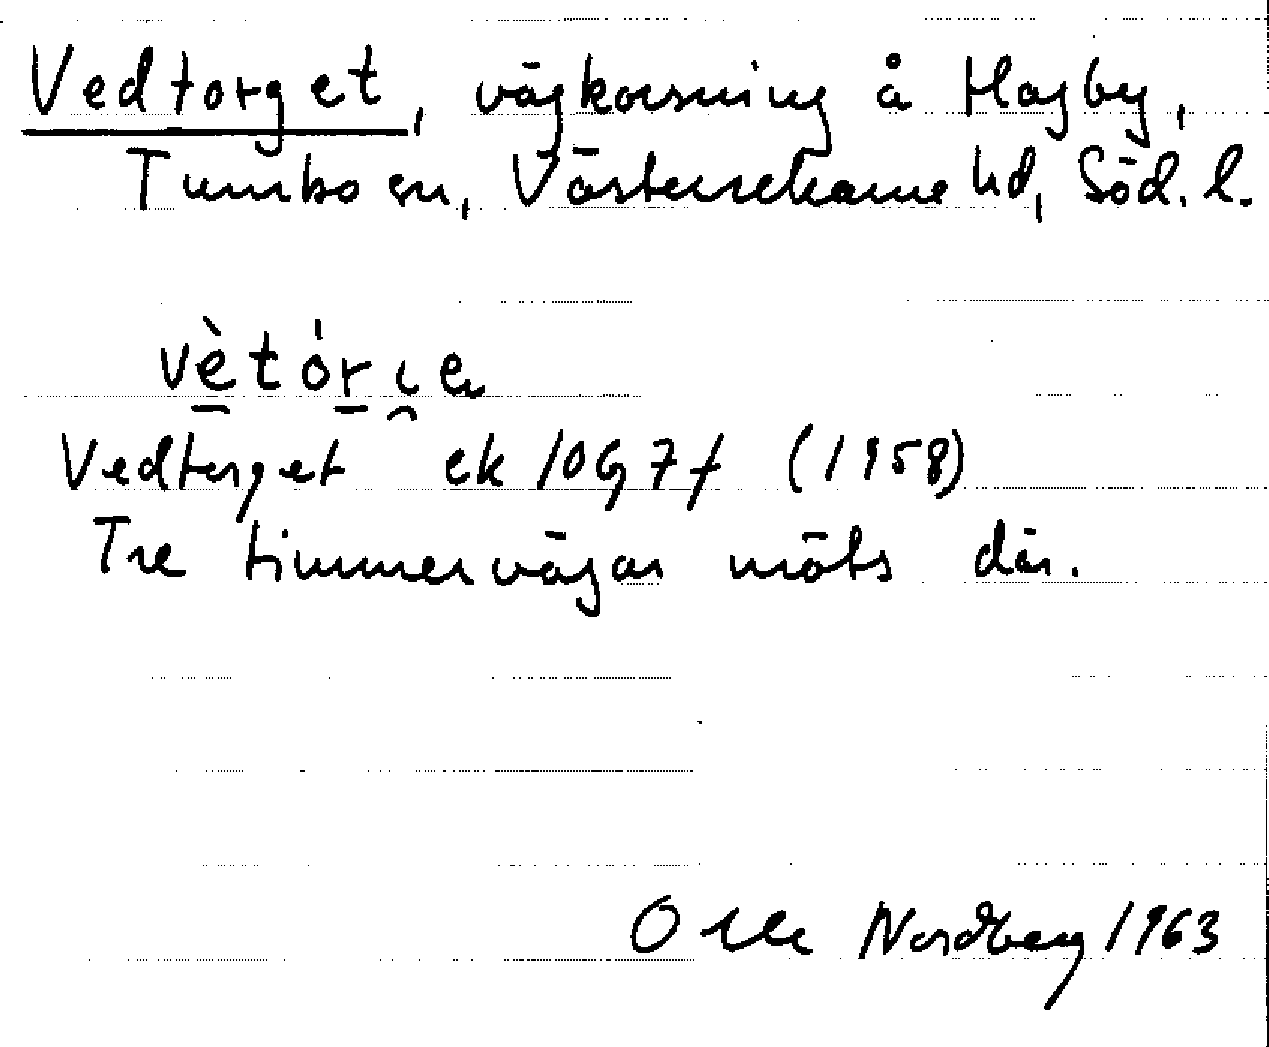 Vedtorget, vägkorsning å Hagby,
Tumbo sn, Västerrekarne hd, Söd. l.
vètórı̯e
Vedtorget ek 10G7f (1958)
Tre timmervägar möts där.
Olle Nordberg 1963